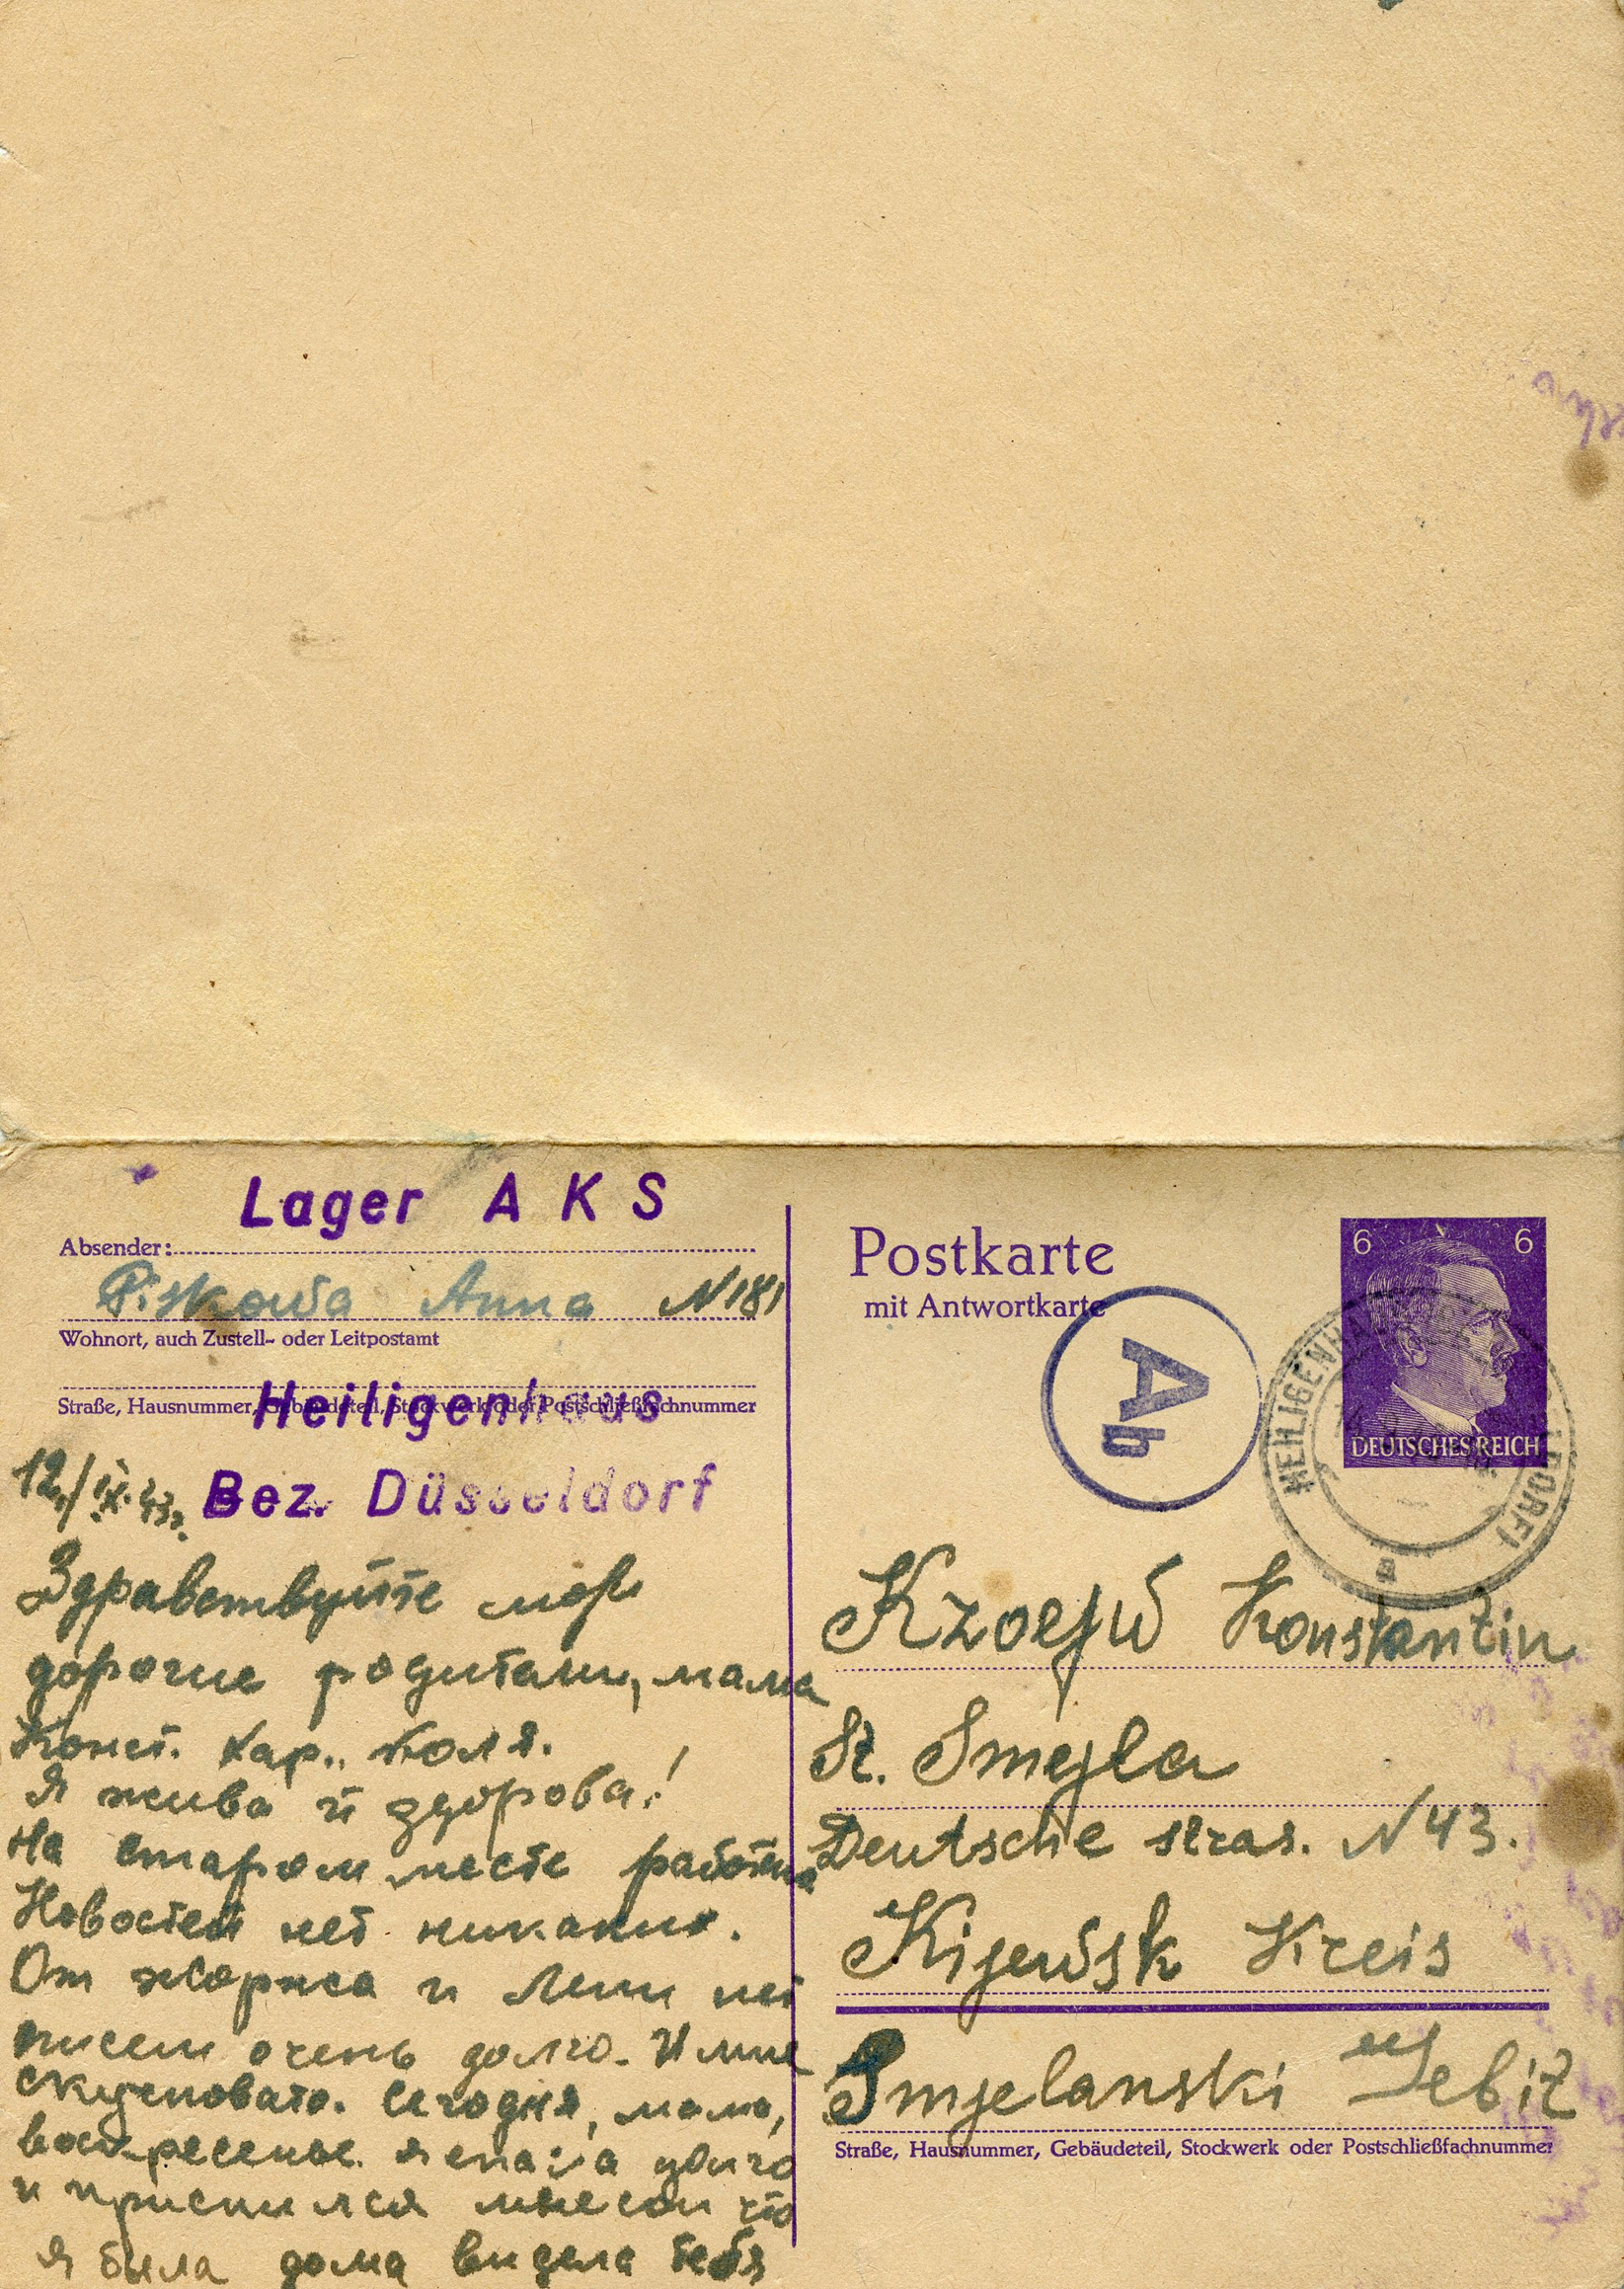 Lager A K S
Absender:
Piskowa Anna N181
Wohnort, auch Zustell- oder Leitpostamt
Heiligenhaus
Straße, Hausnummer, Gebäudeteil, Stockwerk oder Postschließfachnummer
Bez. Düsseldorf
12/IX.43г.
Здравствуйте мои
дорогие родители, мама
Конст. Кар., Коля.
Я жива и здорова!
На старом месте работаю
Новостей нет никаких.
От Жоржса и Лени нет
писем очень долго. И мне
скучновато. Сегодня, мама,
воскресенье. Я спала долго
и приснился мне сон что
я была дома видела тебя
Postkarte
mit Antwortkarte
Ab
6 6
DEUTSCHES REICH
HEILIGENHAUS
a
Konstantin
St. Smejla
Deutsche stras. N43.
Kijewsk Kreis
Smjelanski Gebit
Straße, Hausnummer, Gebäudeteil, Stockwerk oder Postschließfachnummer